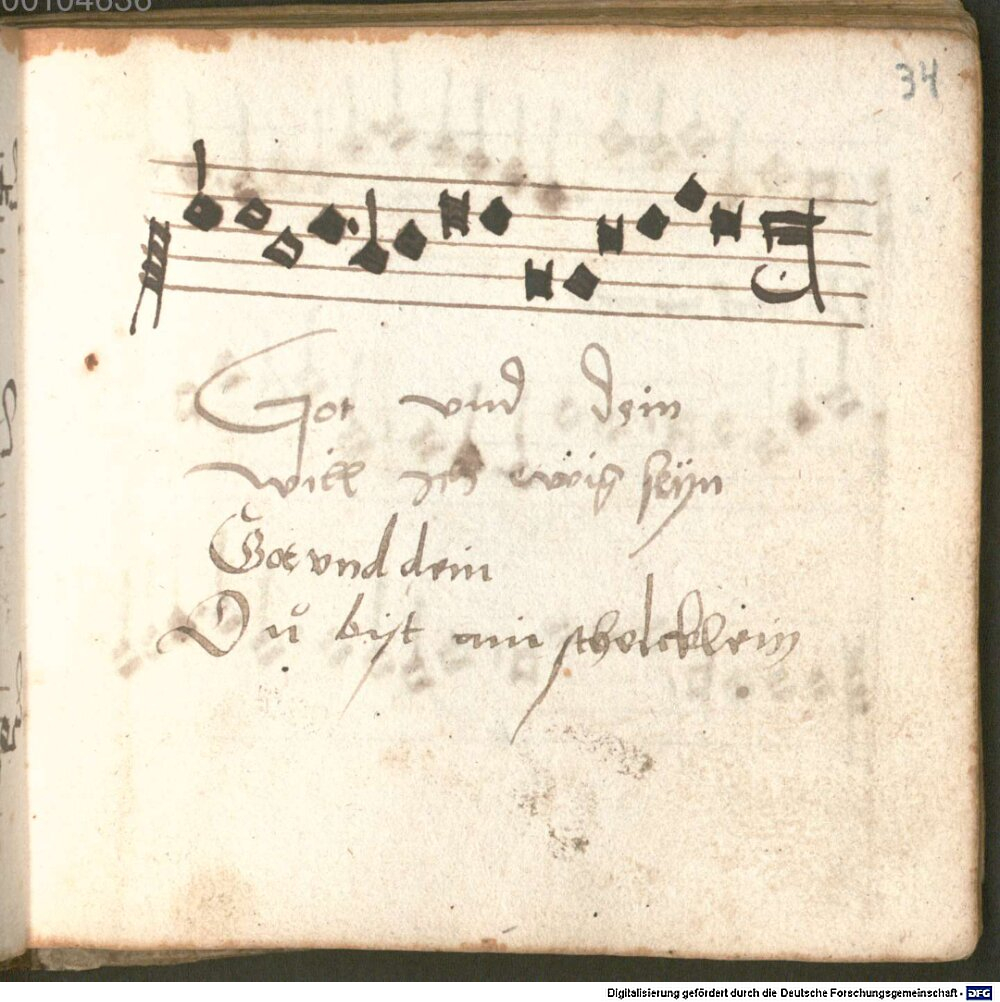 00104636
34
Got vnd dein
will ich ewig seÿn
Got vnd dein
Dů bist ain schelcklein
Digitalisierung gefördert durch die Deutsche Forschungsgemeinschaft - DFG